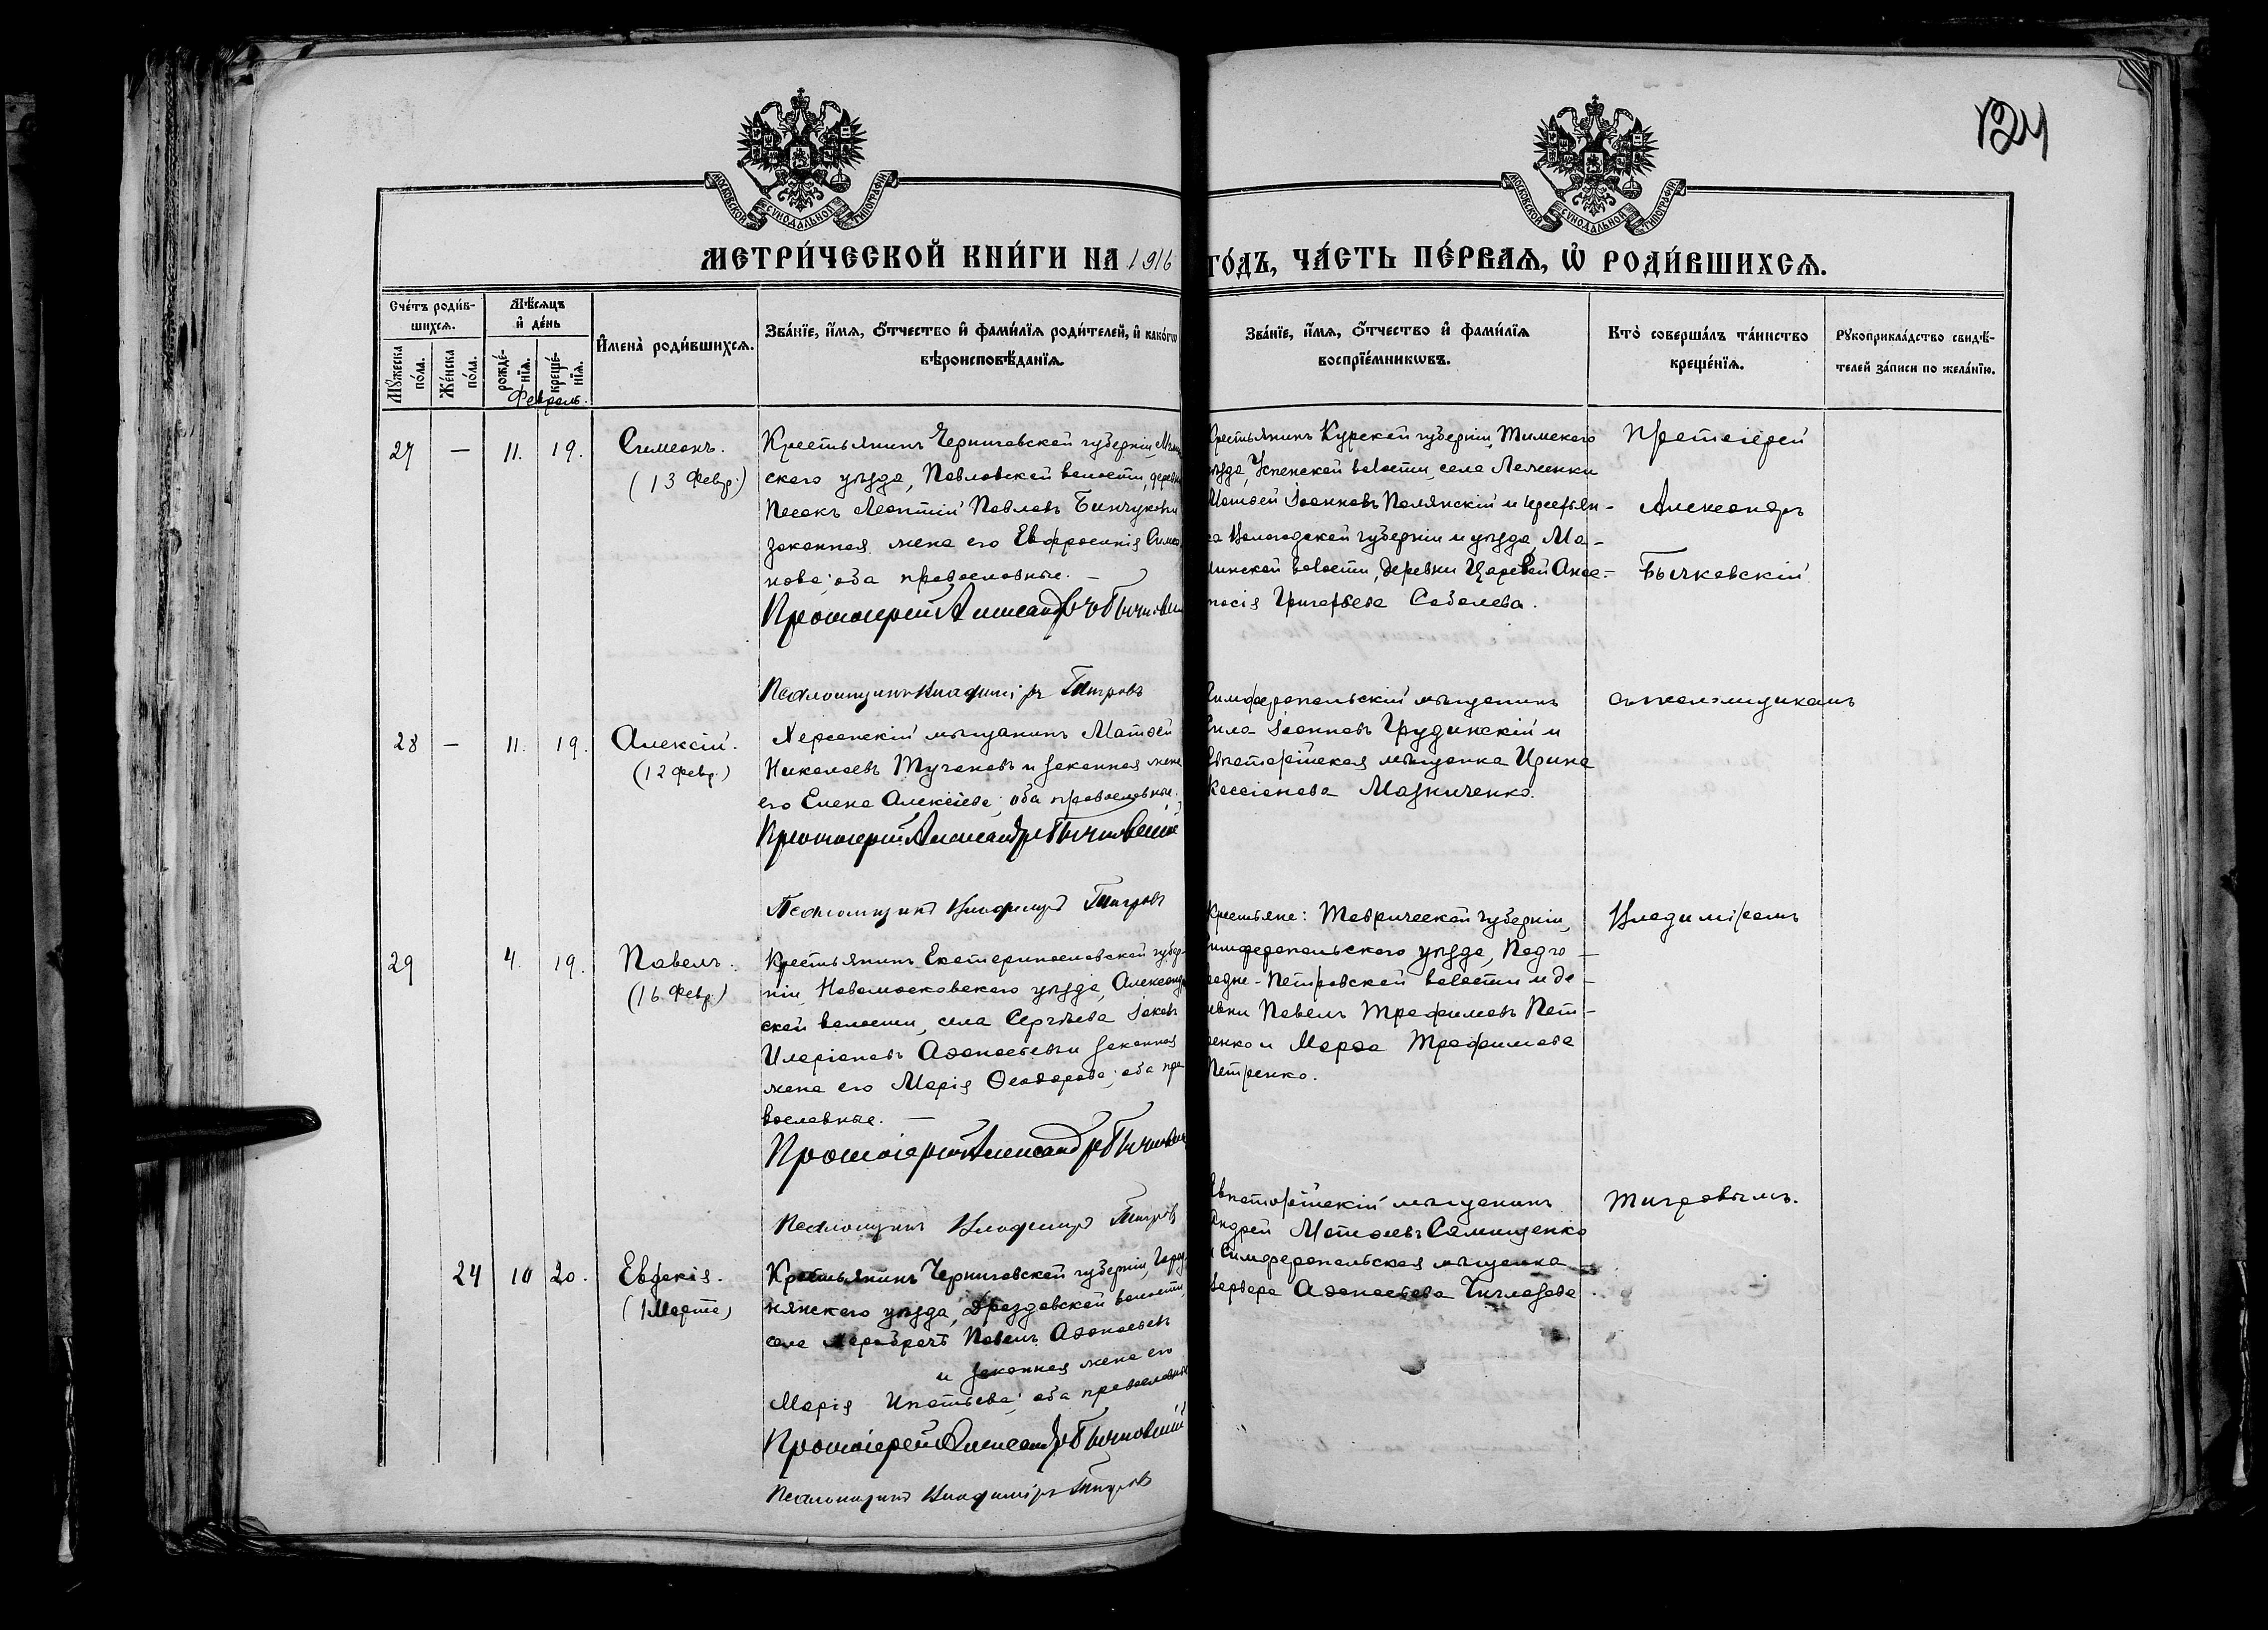 124
МОСКОВСКОЙ СѴНОДАЛЬНОЙ ТИПОГРАФІИ
МОСКОВСКОЙ СѴНОДАЛЬНОЙ ТИПОГРАФІИ
МЕТРИ́ЧЕСКОЙ КНИ́ГИ НА 1916 ГО́ДЪ, ЧА́СТЬ ПЕ́РВАѦ, Ѡ҆ РОДИ́ВШИХСѦ.
Сче́тъ роди́в-
шихсѧ.
Мꙋ́жеска по́ла.
Же́нска по́ла.
Мѣ́сѧцъ
и҆ де́нь
рожде́-
нїѧ.
креще́-
нїѧ.
Февраль.
И҆мена̀ роди́вшихсѧ.
Зва́нїе, и҆́мѧ, ѻ҆́тчество и҆ фами́лїѧ роди́телей, и҆ како́гѡ
вѣроисповѣ́данїѧ.
Зва́нїе, и҆́мѧ, ѻ҆́тчество и҆ фами́лїѧ
воспрїе́мникѡвъ.
Кто̀ соверша́лъ та́инство
креще́нїѧ.
Рꙋкоприкла́дство свидѣ́-
телей за́писи по жела́нїю.
27 — 11. 19. Симеонъ.
(13 Февр.)
Крестьянинъ Черниговской губерніи,
скаго уѣзда, Павловской волости, деревни
Песокъ Леонтій Павловъ Бинчуковъ и
законная жена его Евфросинія Симео
нова; оба православные. —
Протоіерей Александръ Бычковскій
Псаломщикъ Владиміръ Тигровъ
Крестьянинъ Курской губерніи, Тимскаго
уѣзда, Успенской волости, села
Матѳей Іоанновъ Полянскій и крестьян-
ка Вологодской губерніи и уѣзда, Ма-
линской волости, деревни Царевой Анас-
тасія Григорьева Соболева.
Протоіерей
Александръ
Бычковскій
28 — 11. 19. Алексій.
(12 февр.)
Херсонскій мѣщанинъ Матѳей
Николаевъ Тучановъ и законная жена
его Елена Алексіева; оба православные.
Протоіерей Александръ Бычковскій
Псаломщикъ Владиміръ Тигровъ
Симферопольскій мѣщанинъ
Іоанновъ Грудинскій и
Евпаторійская мѣщанка Ирина
Кассіанова Мазниченко.
съ псаломщикомъ
29 4. 19. Павелъ.
(16 Февр.)
Крестьянинъ Екатеринославской губер-
ніи, Новомосковскаго уѣзда, Александров
ской волости, села Сергѣева Іаковъ
Иларіоновъ Аѳанасьевъ и законная
жена его Марія Ѳеодорова; оба пра
вославные. —
Протоіерей Александръ Бычковскій
Псаломщикъ Владиміръ Тигровъ
Крестьяне: Таврической губерніи,
Симферопольскаго уѣзда, Подго-
родне-Петровской волости и де-
ревни Павелъ Трофимовъ Пет-
ренко и Марѳа Трофимова
Петренко.
Владиміромъ
24 10 20. Евдокія.
(1 Марта)
Крестьянинъ Черниговской губерніи, Город
нянскаго уѣзда, Дроздовской волости,
села Павелъ Аѳанасьевъ
и законная жена его
Марія Игнатьева; оба православные
Протоіерей Александръ Бычковскій
Псаломщикъ Владиміръ Тигровъ
Евпаторійскій мѣщанинъ
Андрей Матѳеевъ Семищенко
и Симферопольская мѣщанка
Варвара Аѳанасьева
Тигровымъ.